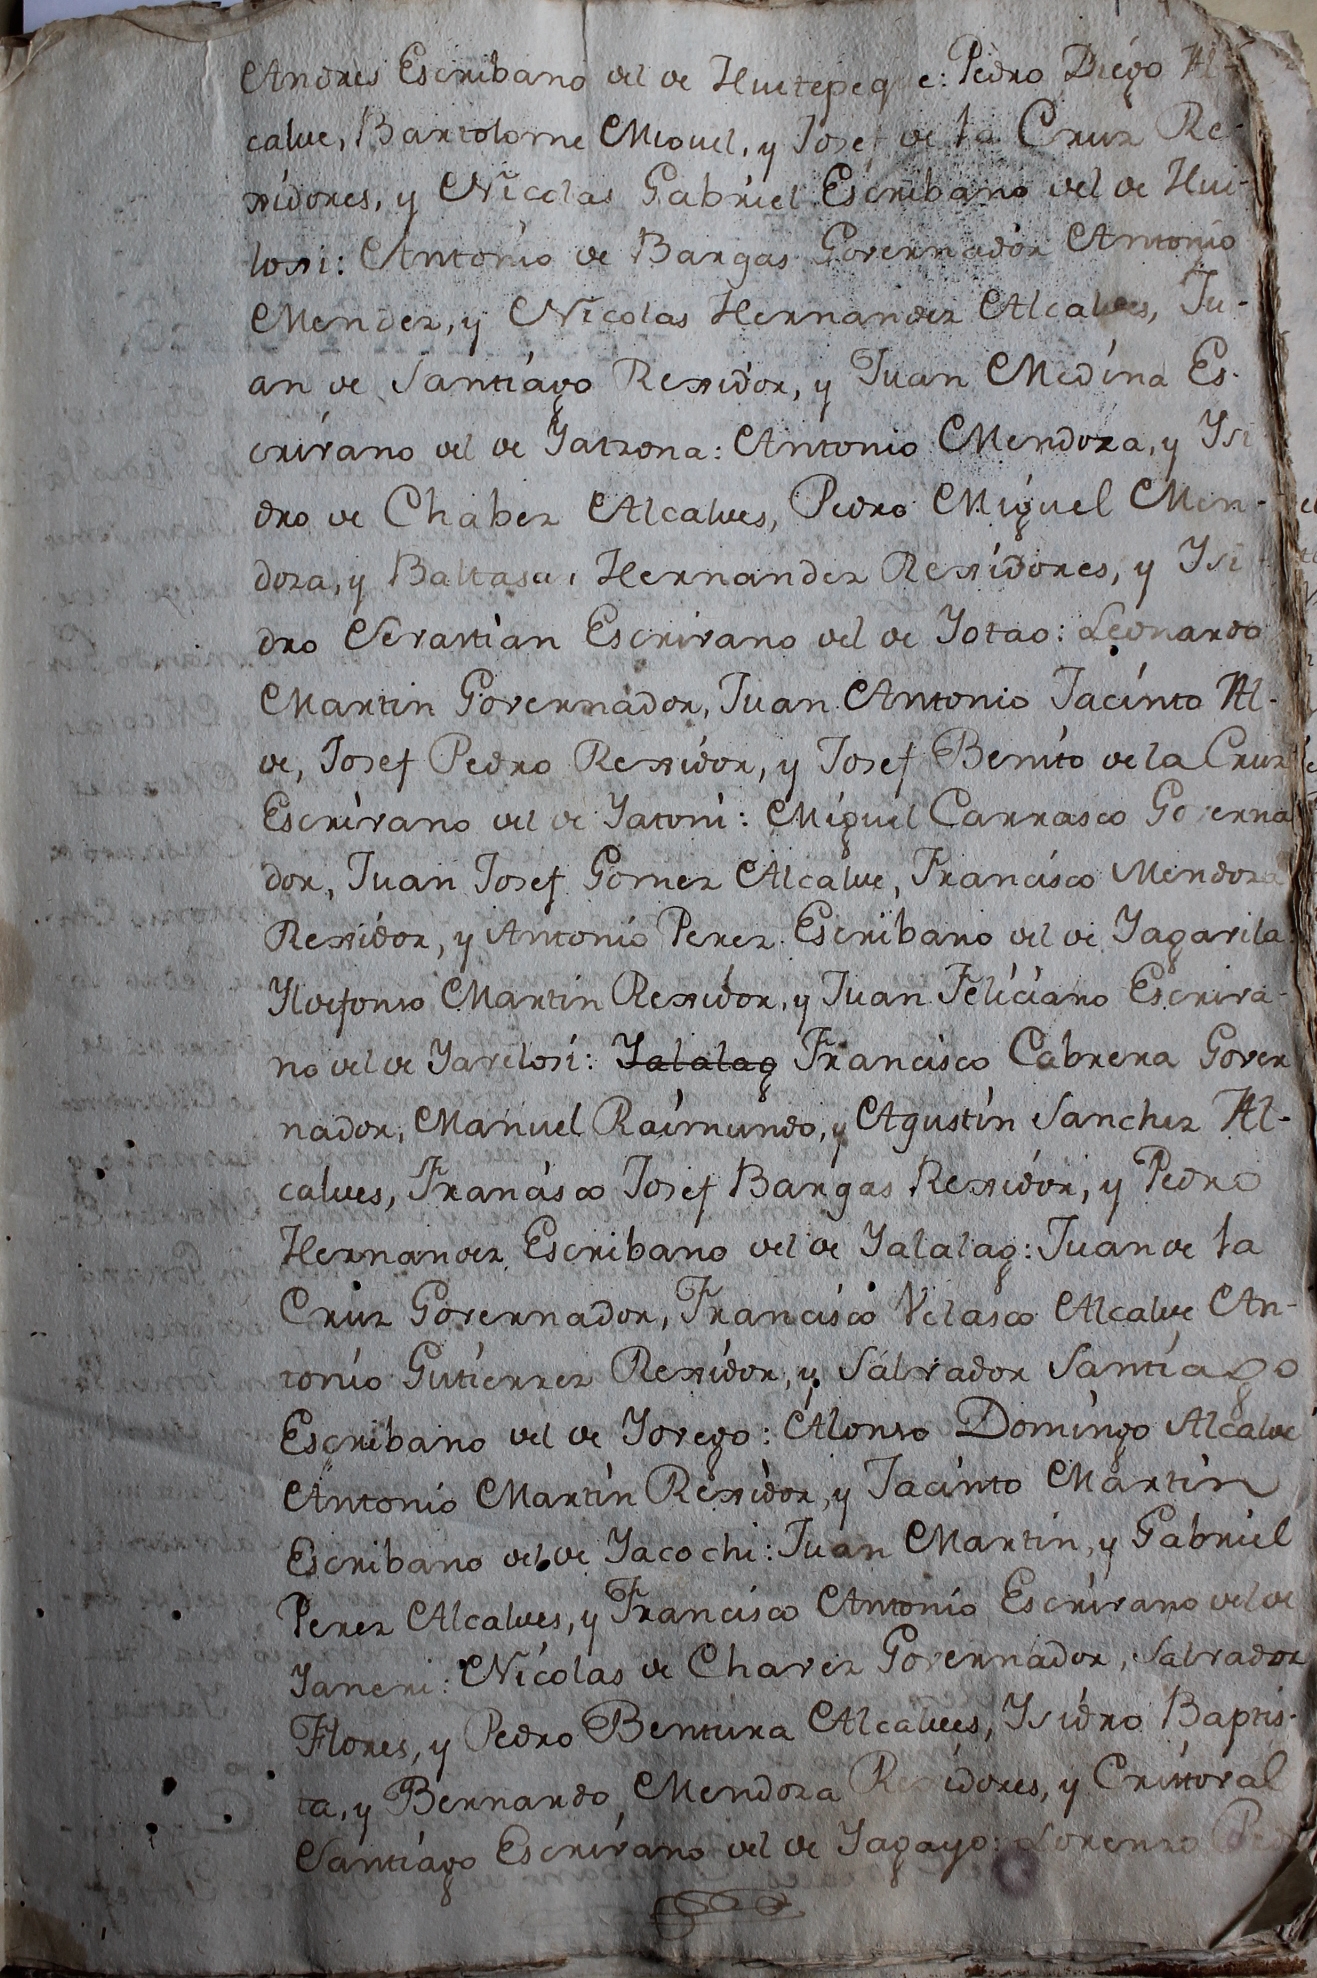 Andres Escribano del de Huitepeque: Pedro Diego Al-
calde, Bartolome Miguel, y Josef de la Cruz Re-
xidores, y Nicolas Gabriel Escribano del de Hui-
loxi: Antonio de Bargas Governador Antonio
Mendez, y Nicolas Hernandez Alcaldes, Ju-
an de Santiago Rexidor, y Juan Medina Es-
crivano del de Yatzona: Antonio Mendoza, y Ysi
dro de Chabez Alcaldes, Pedro Miguel Men-
doza, y Baltasar Hernandez Rexidores, y Ysi-
dro Sevastian Escrivano del de Yotao: Leonardo
Martin Governador, Juan Antonio Jacinto Al-
de, Josef Pedro Rexidor, y Josef Benito de la Cruz
Escrivano del de Yatoni: Miguel Carrasco Governa
dor, Juan Josef Gomez Alcalde, Francisco Mendoza
Rexidor, y Antonio Perez Escribano del de Yagavila:
Yldefonso Martin Rexidor, y Juan Feliciano Escriva-
no del de Yavelosi: Yalalag Francisco Cabrera Gover
nador, Manuel Raimundo, y Agustin Sanchez Al-
caldes, Francisco Josef Bargas Rexidor, y Pedro
Hernandez Escribano del de Yalalag: Juan de la
Cruz Governador, Francisco Velasco Alcalde An-
tonio Gutierrez Rexidor, y Salvador Santiago
Escribano del de Yovego: Alonso Domingo Alcalde
Antonio Martin Rexidor, y Jacinto Martin
Escribano del de Yacochi: Juan Martin, y Gabriel
Perez Alcaldes, y Francisco Antonio Escrivano del de
Yaneri: Nicolas de Chavez Governador, Salvador
Flores, y Pedro Bentura Alcaldes, Ysidro Baptis-
ta, y Bernardo Mendoza Rexidores, y Cristoval
Santiago Escrivano del de Yagayo: Lorenzo